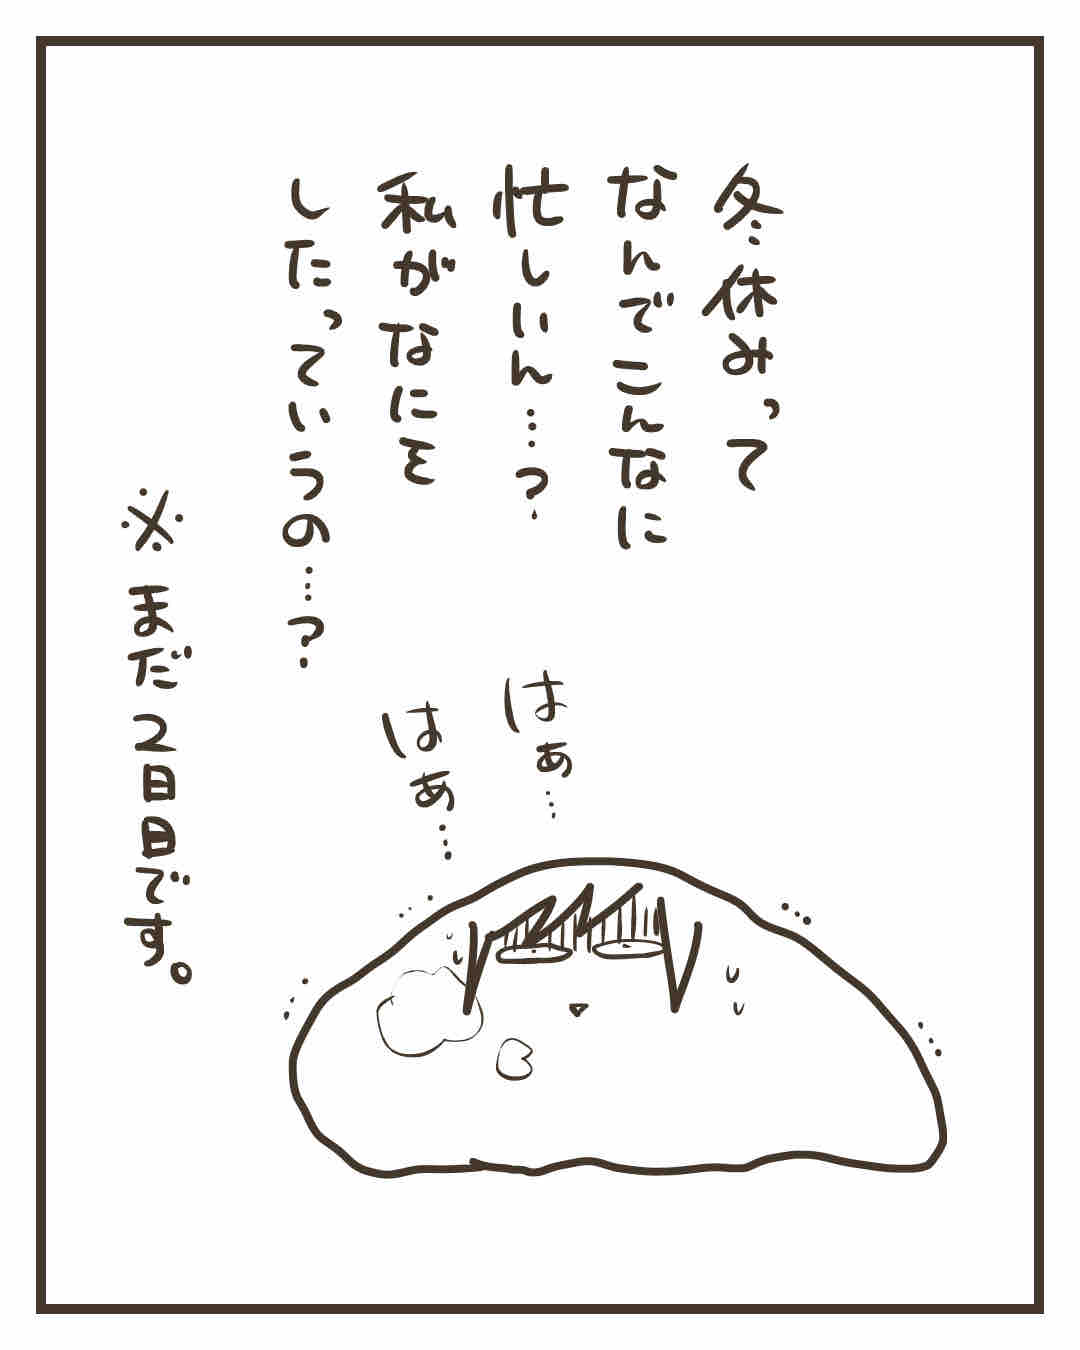 冬休みって
なんでこんなに
忙しいん…？
私がなにを
したっていうの…？
はぁ…
はぁ…
※まだ2日目です。